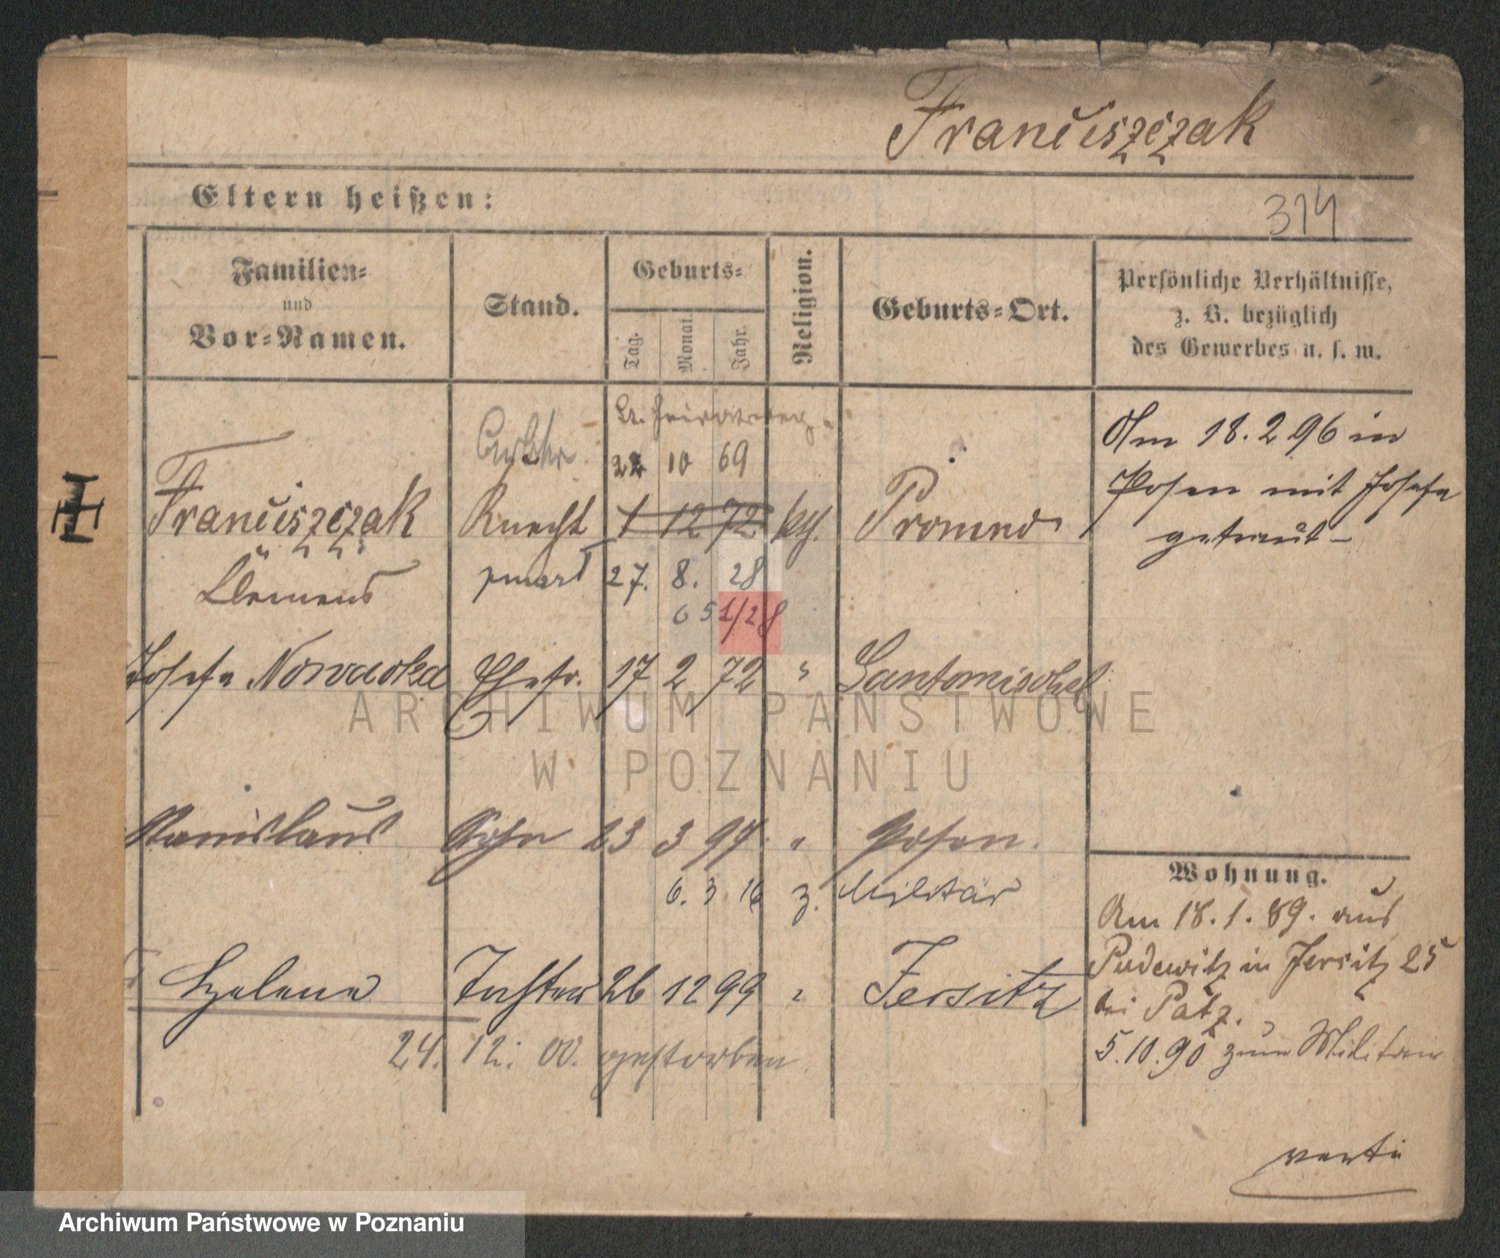 Franciszczak
Eltern heißen:
314
Familien-
und
Vor-Namen.
Stand.
Geburts-
Tag.
Monat.
Jahr.
Religion.
Geburts-Ort.
Persönliche Verhältnisse,
z. B. bezüglich
des Gewerbes u. s. w.
22 10 69
Franciszczak Knecht 1 12 72 kth. Promno
Clemens 27. 8. 28
6 5 1/28
Am 18.2 96 in
Posen mit Josefa
getraut –
Josefa Nowacka Ehefr. 17 2 72 " Santomischel
Stanislaus Sohn 23 3 97 " Posen.
6. 3. 16 z. Militär
Helene Tochter 26 12 99 " Jersitz
24. 12. 00. gestorben
Wohnung.
Am 18.1.89. aus
Pudewitz in Jersitz 25
bei Patz.
5.10.90 zum Militair
verte
ARCHIWUM PAŃSTWOWE
W POZNANIU
Archiwum Państwowe w Poznaniu